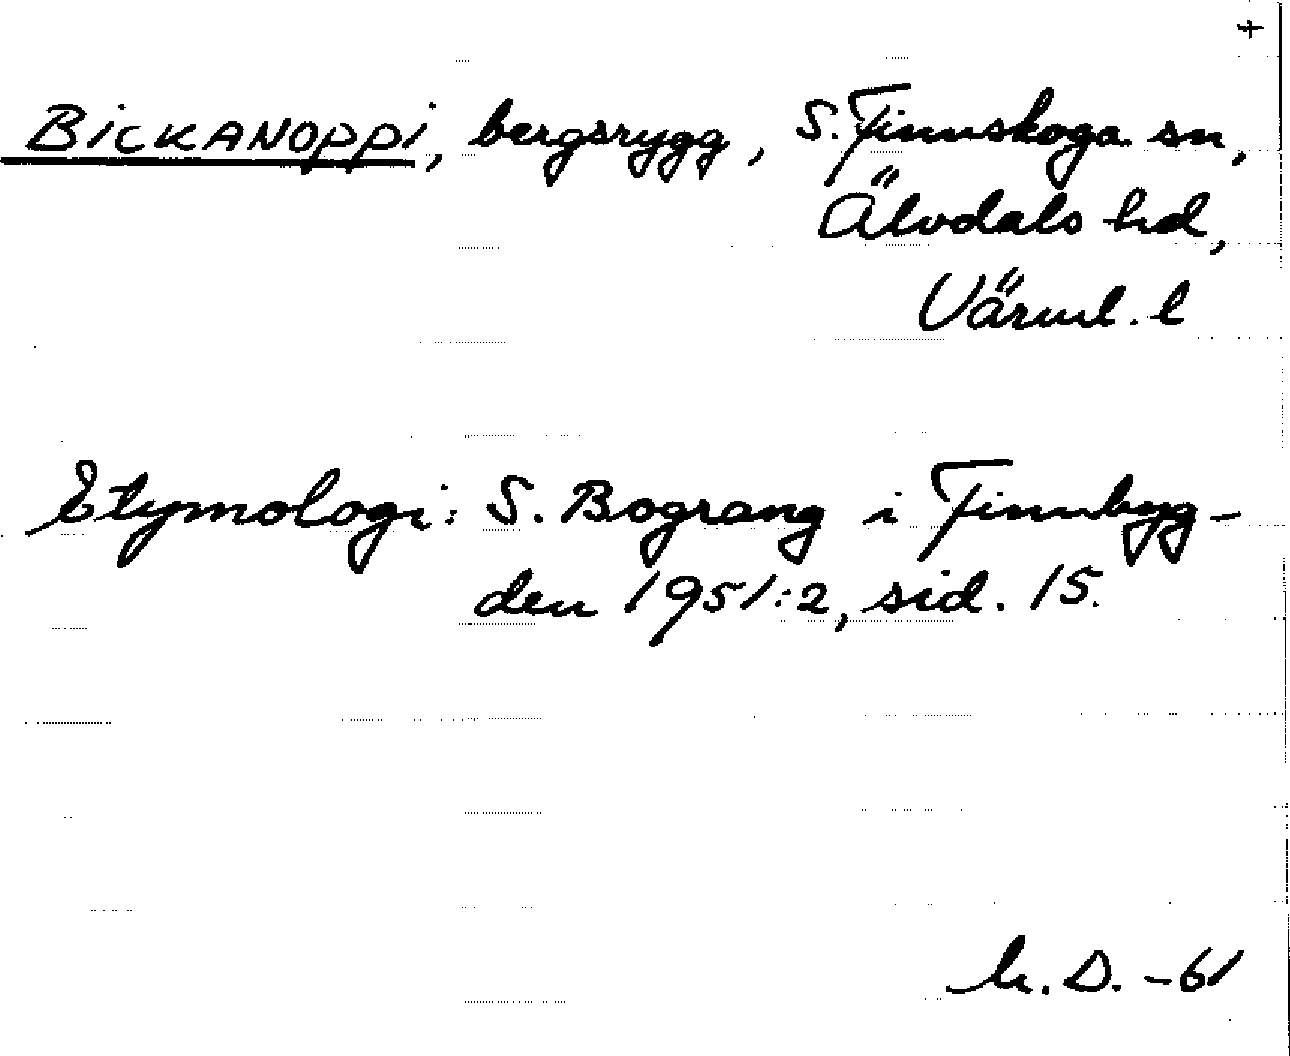 +
BICKANOPPI, bergsrygg, S. Finnskoga sn,
Älvdals hd,
Värml. l
Etymologi: S. Bograng i Finnbyg-
den 1951:2, sid. 15.
D. -61